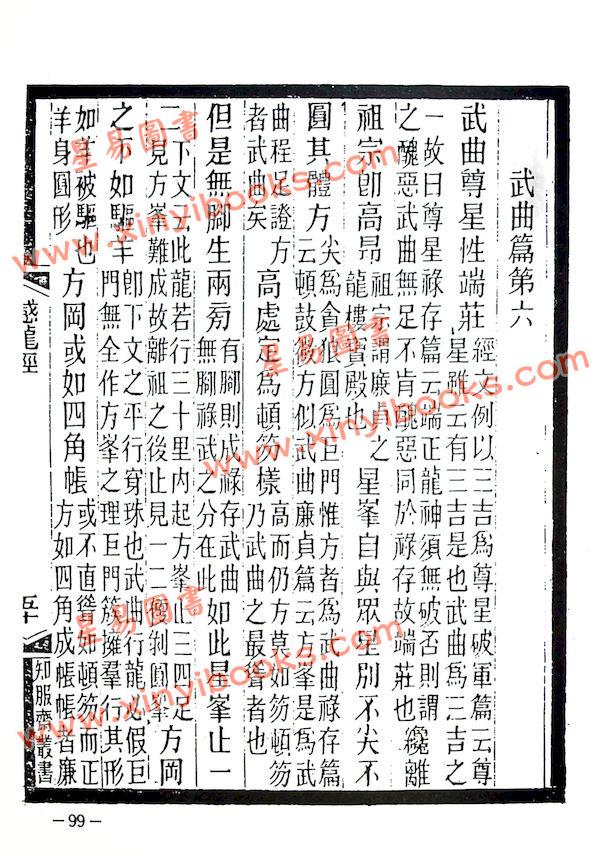 武曲篇第六
武曲尊星性端莊
經文例以三吉爲尊星破軍篇云尊
星雖云有三吉是也武曲爲三吉之
一故曰尊星祿存篇云端正龍神須無破否則謂
之醜惡武曲無足不肯醜惡同於祿存故端莊也
纔離
祖宗卽高昂
祖宗謂廉貞之
龍樓寶殿也
星峯自與眾星別不尖不
圓其體方
尖爲貪狼圓爲巨門惟方者爲武曲祿存篇
云頓鼓微方似武曲廉貞篇云方峯是爲武
曲程足證方
者武曲矣
高處定爲頓笏樣
高而仍方莫如笏頓笏
乃武曲之最聳者也
但是無脚生兩旁
有脚則成祿存武曲
無脚祿武之分在此
如此星峯止一
二
下文云此龍若行三十里內起方峯止三四定
見方峯難成故離祖之後止見一二僾剝圓峯
方岡
之下如驅羊
卽下文之平行穿珠也武曲行龍必假巨
門無全作方峯之理巨門簇擁羣行其形
如羊被驅也
羊身圓形
方岡或如四角帳
或不直聳如頓笏而正
方如四角成帳帳者廉
感龍經
五十
知服齋叢書
—99—
星易圖書
www.xinyibooks.com
星易圖書
www.xinyibooks.com
星易圖書
www.xinyibooks.com
星易圖書
www.xinyibooks.com